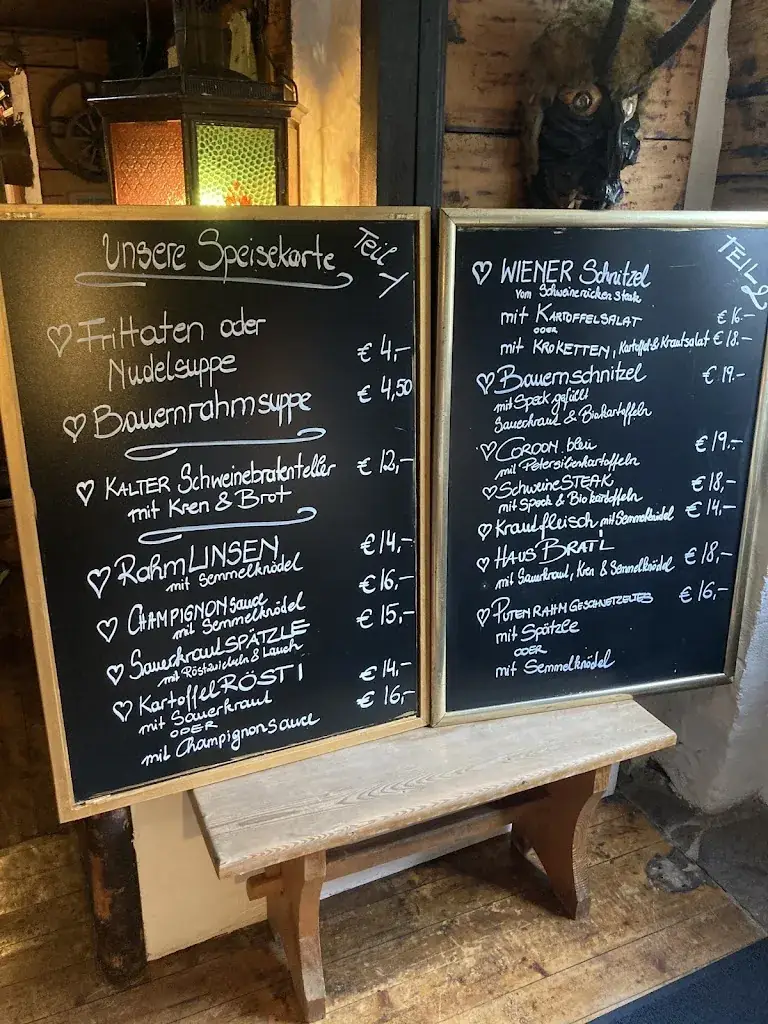 Unsere Speisekarte
Teil 1
♡ Frittaten oder € 4,-
Nudelsuppe
♡ Bauernrahmsuppe € 4,50
♡ KALTER Schweinebratenteller € 12,-
mit Kren & Brot
♡ RahmLINSEN € 14,-
mit Semmelknödel
♡ CHAMPIGNONsauce € 16,-
mit Semmelknödel
♡ SauerkrautSPÄTZLE € 15,-
mit Röstzwiebeln & Lauch
♡ KartoffelRÖSTI € 14,-
mit Sauerkraut
ODER € 16,-
mit Champignonsauce
TEIL 2
♡ WIENER Schnitzel
vom Schweinerücken steak
mit KARTOFFELSALAT € 16.-
ODER
mit KROKETTEN, Kartoffel & Krautsalat € 18.-
♡ Bauernschnitzel € 19.-
mit Speck gefüllt
Sauerkraut & Biokartoffeln
♡ CORDON bleu € 19.-
mit Petersilienkartoffeln
♡ SchweineSTEAK € 18,-
mit Speck & Biokartoffeln
♡ Krautfleisch mit Semmelknödel € 14,-
♡ HAUS BRAT'L
mit Sauerkraut, Kren & Semmelknödel € 18,-
♡ PUTENRAHMGESCHNETZELTES € 16,-
mit Spätzle
ODER
mit Semmelknödel